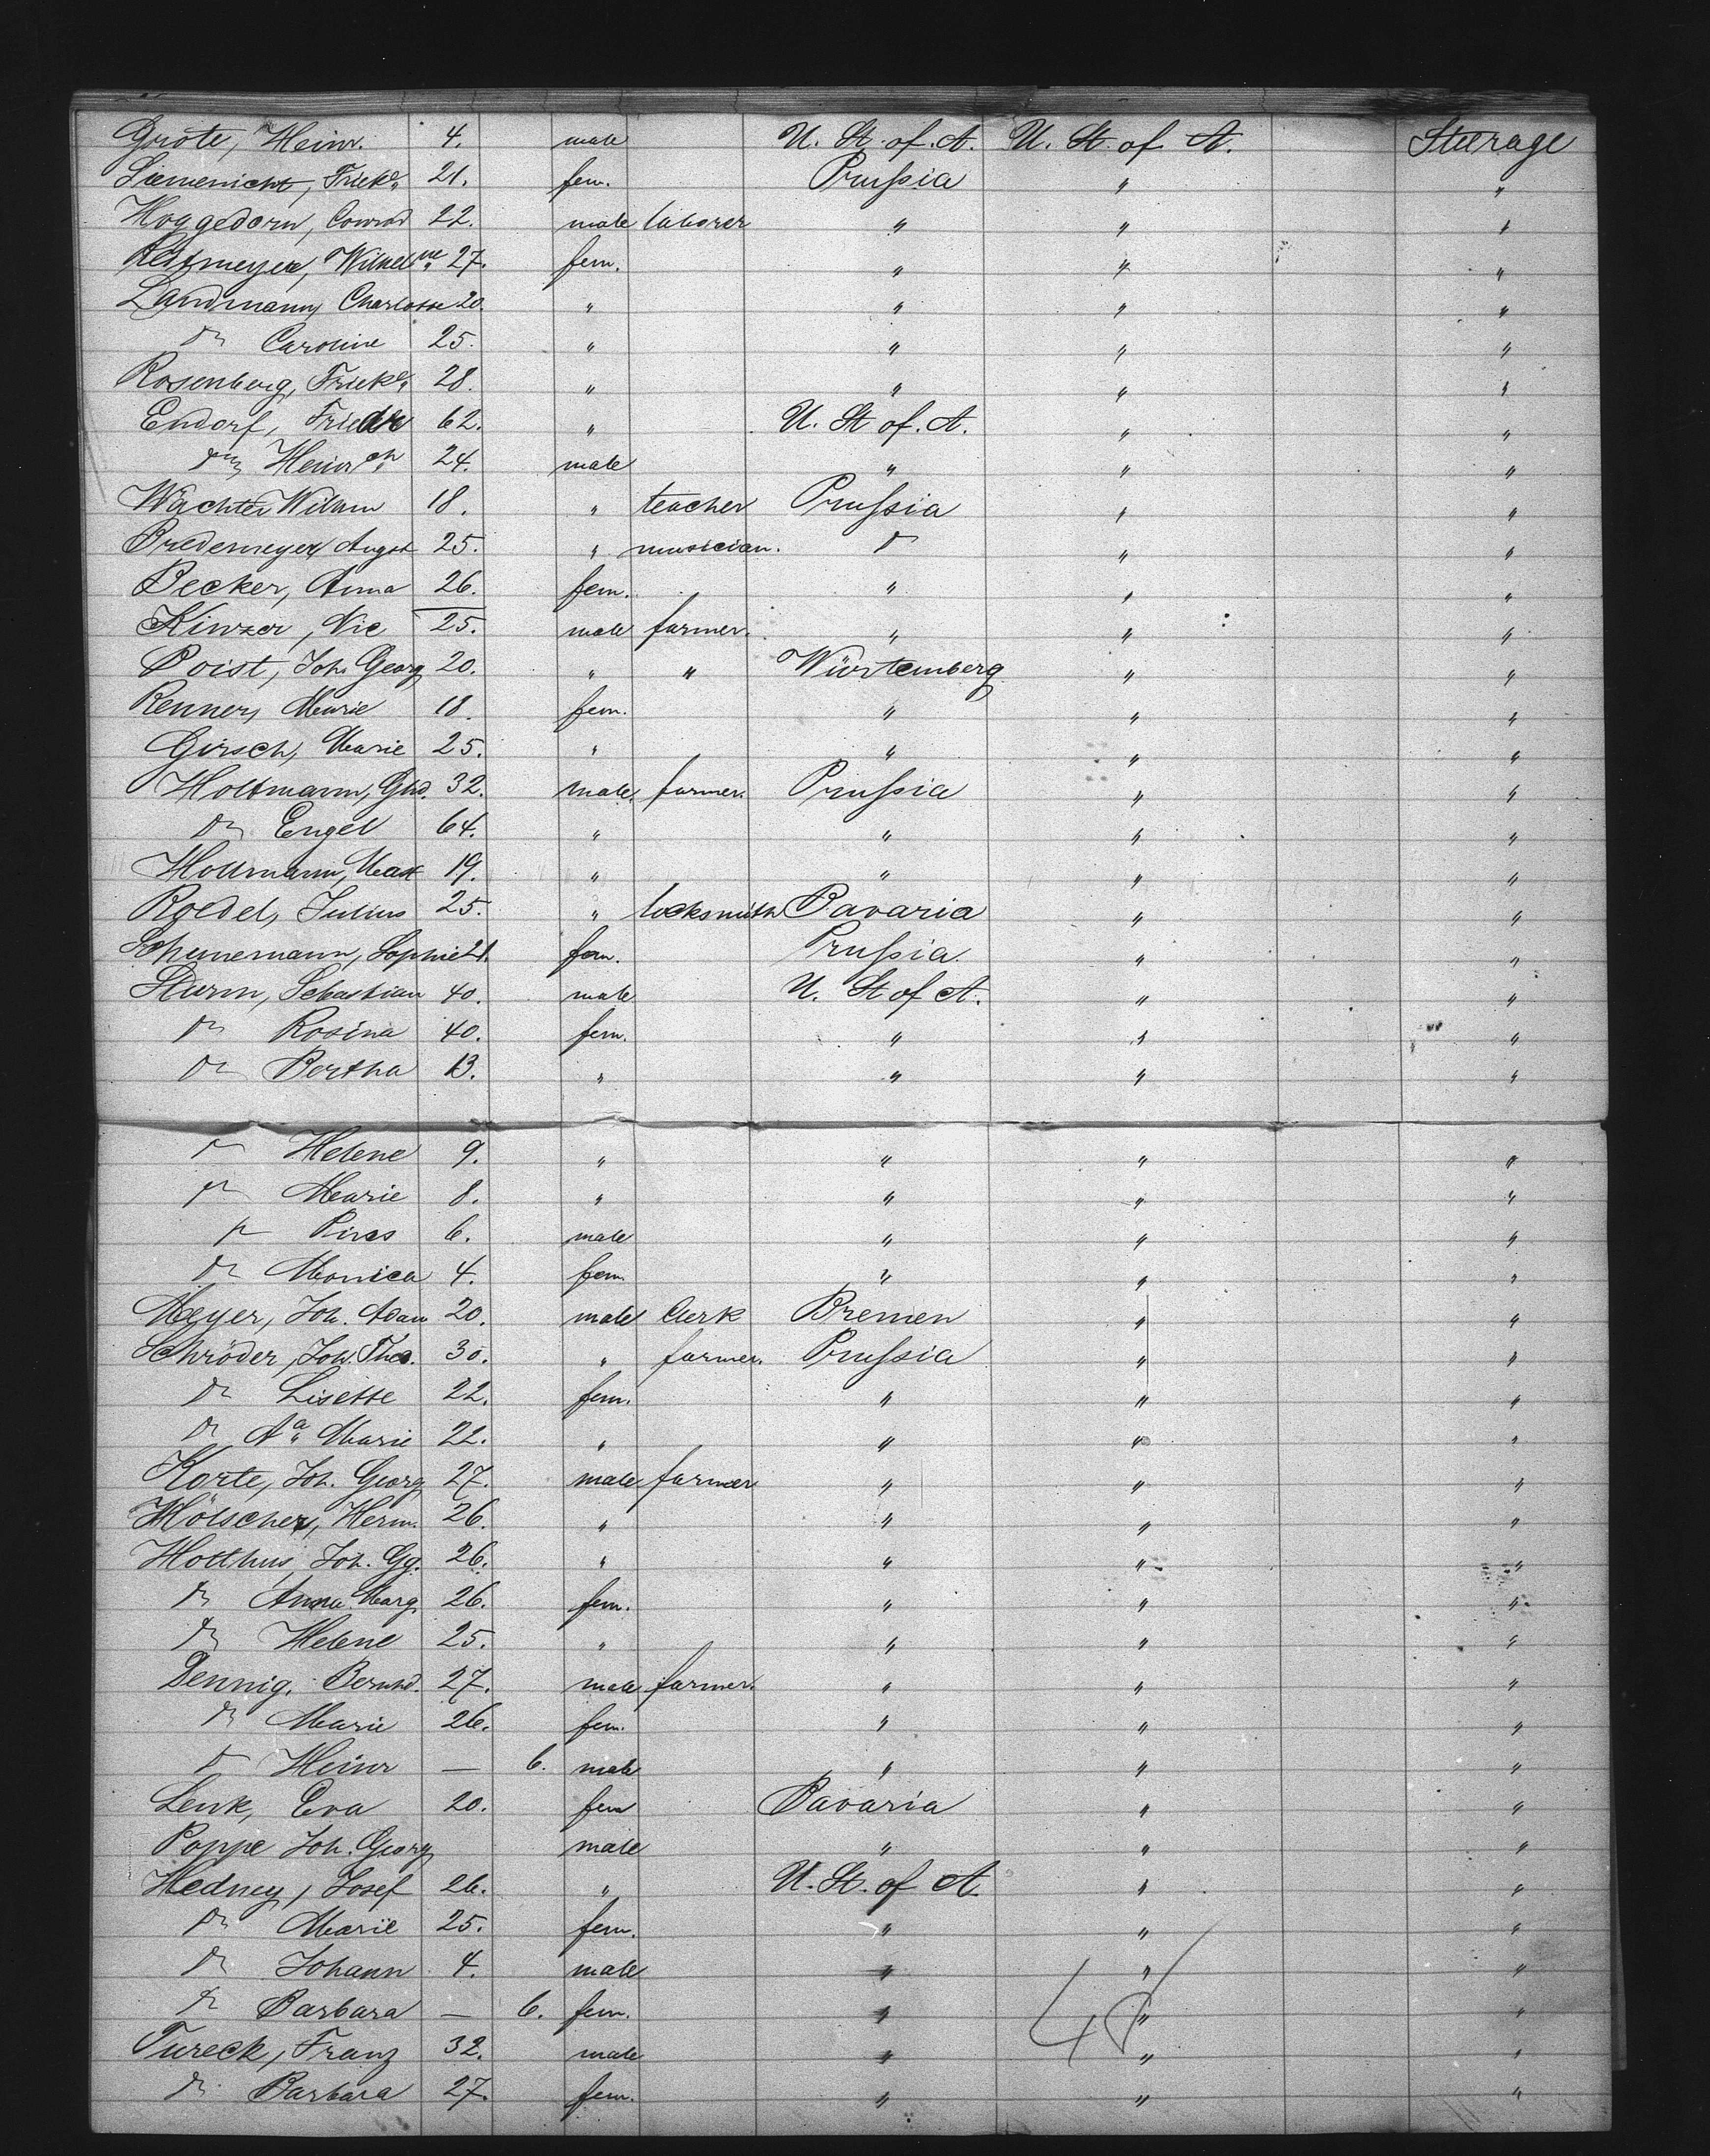 Grote, Heinr. 4. male U. St. of. A. U. St. of A. Steerage
Liemenicht, Frieke. 21. fem. Prussia " "
Hoggedorn, Conrad 22. male laborer " " "
Restmeyer, Wilhelmne 27. fem. " " "
Landmann, Charlotte 20. " " " "
do Caroline 25. " " " "
Rosenberg, Frieke. 28. " " " "
Endorf, Friedke 62. " U. St of. A. " "
do Heinrch 24. male " " "
Wächter Wilhm 18. " teacher Prussia " "
Bredemeyer August 25. " musician. do " "
Becker, Anna 26. fem. " " "
Kinzer, Nic 25. male farmer. " " "
Poist, Joh. Georg 20. " " Würtemberg " "
Renner, Marie 18. fem. " " "
Girsch, Marie 25. " " " "
Holtmann, Ghd. 32. male. farmer. Prussia " "
do Engel 64. " " " "
Hollmann, Max 19. " " " "
Roedel, Julius 25. " locksmith Bavaria " "
Schunemann, Sophie 21. fem. Prussia " "
Sturm, Sebastian 40. male U. St of A. " "
do Rosina 40. fem. " " "
do Bertha 13. " " " "
do Helene 9. " " " "
do Marie 8. " " " "
do Pires 6. male " " "
do Monica 4. fem " " "
Meyer, Joh. Adam 20. male Clerk Bremen " "
Schröder, Joh. Theo. 30. " farmer. Prussia " "
do Lisette 22. fem. " " "
do Aa Marie 22. " " " "
Korte, Joh. Georg 27. male farmer " " "
Hölscher, Herm. 26. " " " "
Holthus, Joh. Gg. 26. " " " "
do Anna Marg. 26. fem. " " "
do Helene 25. " " " "
Dennig, Bernhd. 27. male farmer. " " "
do Marie 26. fem. " " "
do Heinr — 6. male " " "
Lenk, Eva 20. fem Bavaria " "
Poppe Joh. Georg male " " "
Hedney, Josef 26. " U. St. of A. " "
do Marie 25. fem. " " "
do Johann 4. male " " "
do Barbara — 6. fem. " " "
Tureck, Franz 32. male " " "
do Barbara 27. fem. " " "
48